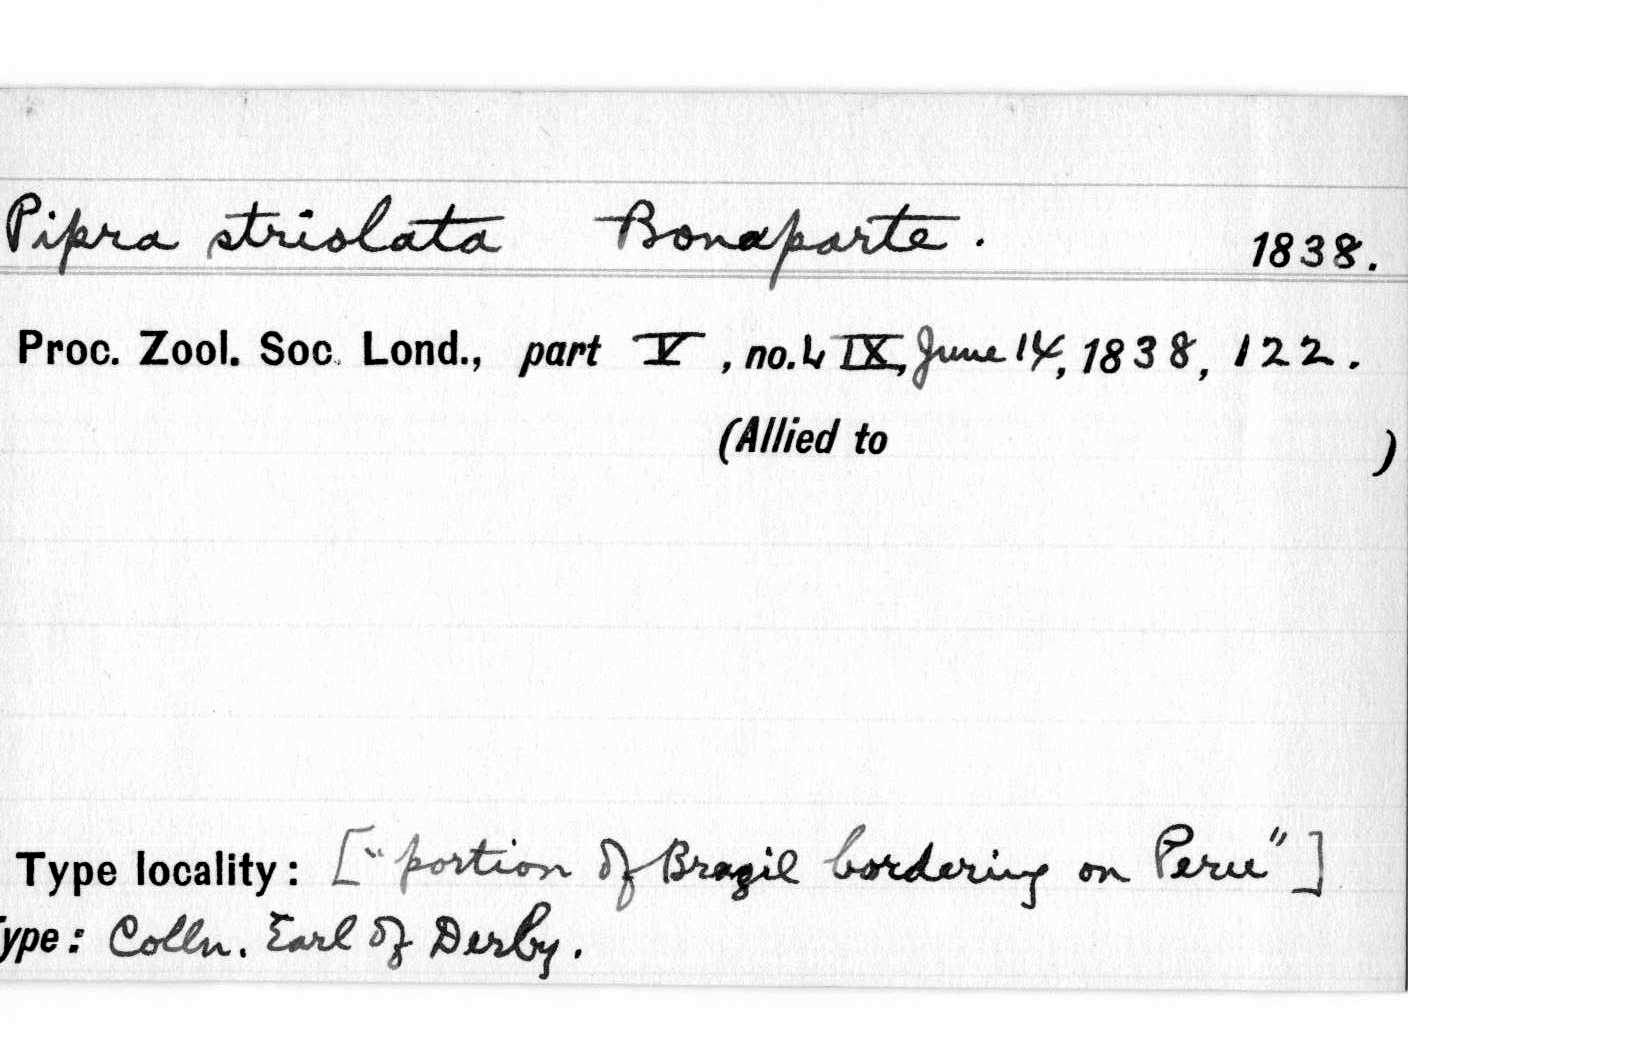 Pipra striolata Bonaparte. 1838.
Proc. Zool. Soc. Lond., part V, no. LIX, June 14, 1838, 122.
(Allied to )
Type locality: ["portion of Brazil bordering on Peru"]
Type: Colln. Earl of Derby.